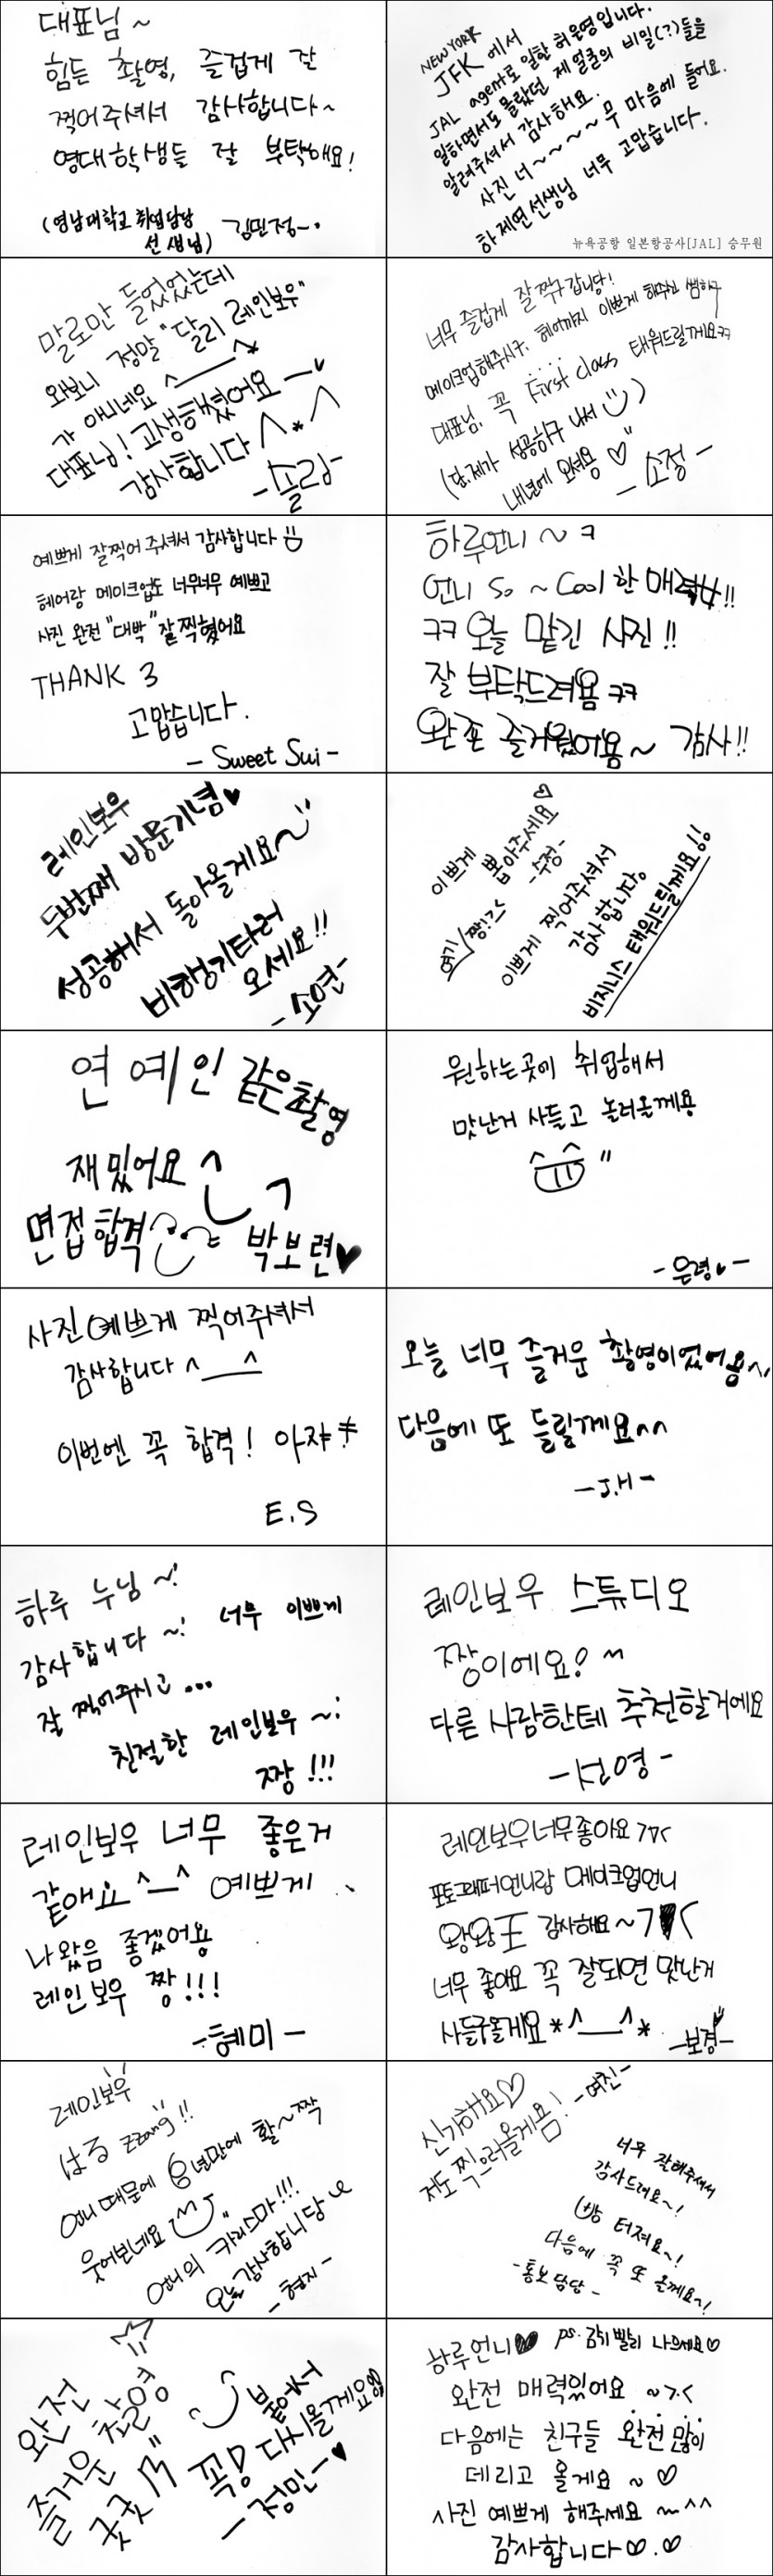 대표님~
힘든 촬영, 즐겁게 잘
찍어주셔서 감사합니다~
영대학생들 잘 부탁해요!
(영남대학교 취업담당
선생님) 김민정~.
NEW YORK
JFK 에서
JAL agent로 일한 허은영입니다.
일하면서도 몰랐던 제 얼굴의 비밀(?)들을
알려주셔서 감사해요.
사진 너~~~~무 마음에 들어요.
하제연선생님 너무 고맙습니다.
뉴욕공항 일본항공사[JAL] 승무원
말로만 들었었는데
와보니 정말 "달리 레인보우"
가 아니네요 ^___^*
대표님! 고생하셨어요
감사합니다 ^*^
-솔람-
너무 즐겁게 잘 찍구 갑니당!
메이크업해주시구, 헤어까지 이쁘게 해주신 쌤하구
대표님, 꼭 First class 태워드릴께요ㅋㅋ
(단, 제가 성공하구 나서 )
내년에 오셔용 ♡
- 소정 -
예쁘게 잘찍어 주셔서 감사합니다
헤어랑 메이크업도 너무너무 예쁘고
사진 완전 "대박" 잘 찍혔어요
THANK 3
고맙습니다.
- Sweet Sui -
하루언니 ~ ㅋ
언니 So ~ Cool 한 매력녀!!
ㅋㅋ 오늘 맡긴 사진!!
잘 부탁드려욤 ㅋㅋ
완죤 즐거웠어욤~ 감사!!
레인보우
두번째 방문기념♥
성공해서 돌아올게요~
비행기타러
오세요!!
-소연-
이쁘게
뽑아주세요♡
-수정-
여기 짱!><
이쁘게 찍어주셔서
감사합니다.
비지니스 태워드릴께요!!
연예인 같은촬영
재밌어요
면접합격 박보련♥
원하는곳에 취업해서
맛난거 사들고 놀러올께용
-은령♥-
사진예쁘게 찍어주셔서
감사합니다 ^___^
이번엔 꼭 합격! 아쟈
E.S
오늘 너무 즐거운 촬영이었어용^^
다음에 또 들릴께요^^
-J.H-
하루 누님 ~!
감사합니다 ~! 너무 이쁘게
잘 찍어주시고 ...
친절한 레인보우 ~!
짱!!!
레인보우 스튜디오
짱이에요! ^^
다른 사람한테 추천할거에요
-선영-
레인보우 너무 좋은거
같애요 ^_^ 예쁘게
나왔음 좋겠어용
레인보우 짱!!!
-혜미-
레인보우너무좋아요 >▽<
포토그래퍼언니랑 메이크업언니
왕왕王 감사해요~>♥<
너무 좋아요 꼭 잘되면 맛난거
사들구올게요 *^___^*
-보경-
레인보우
はる zzang!!
언니 때문에 8년만에 활~짝
웃어보네요
언니의 카리스마!!!
오늘감사합니당
-현지-
신기해요♡
저도 찍으러올게욤! -여진-
너무 잘해주셔서
감사드려요~!
터져요~!
다음에 꼭 또 올께요~!
-홍보담당-
완전
즐거운 촬영
굿굿
붙어서
꼭! 다시올게요
-정민-♥
하루언니♥ ps.감기빨리 나으세요♡
완전 매력있어요 ~>.<
다음에는 친구들 완전 많이
데리고 올게요 ~ ♡
사진 예쁘게 해주세요 ~^^
감사합니다♡.♡